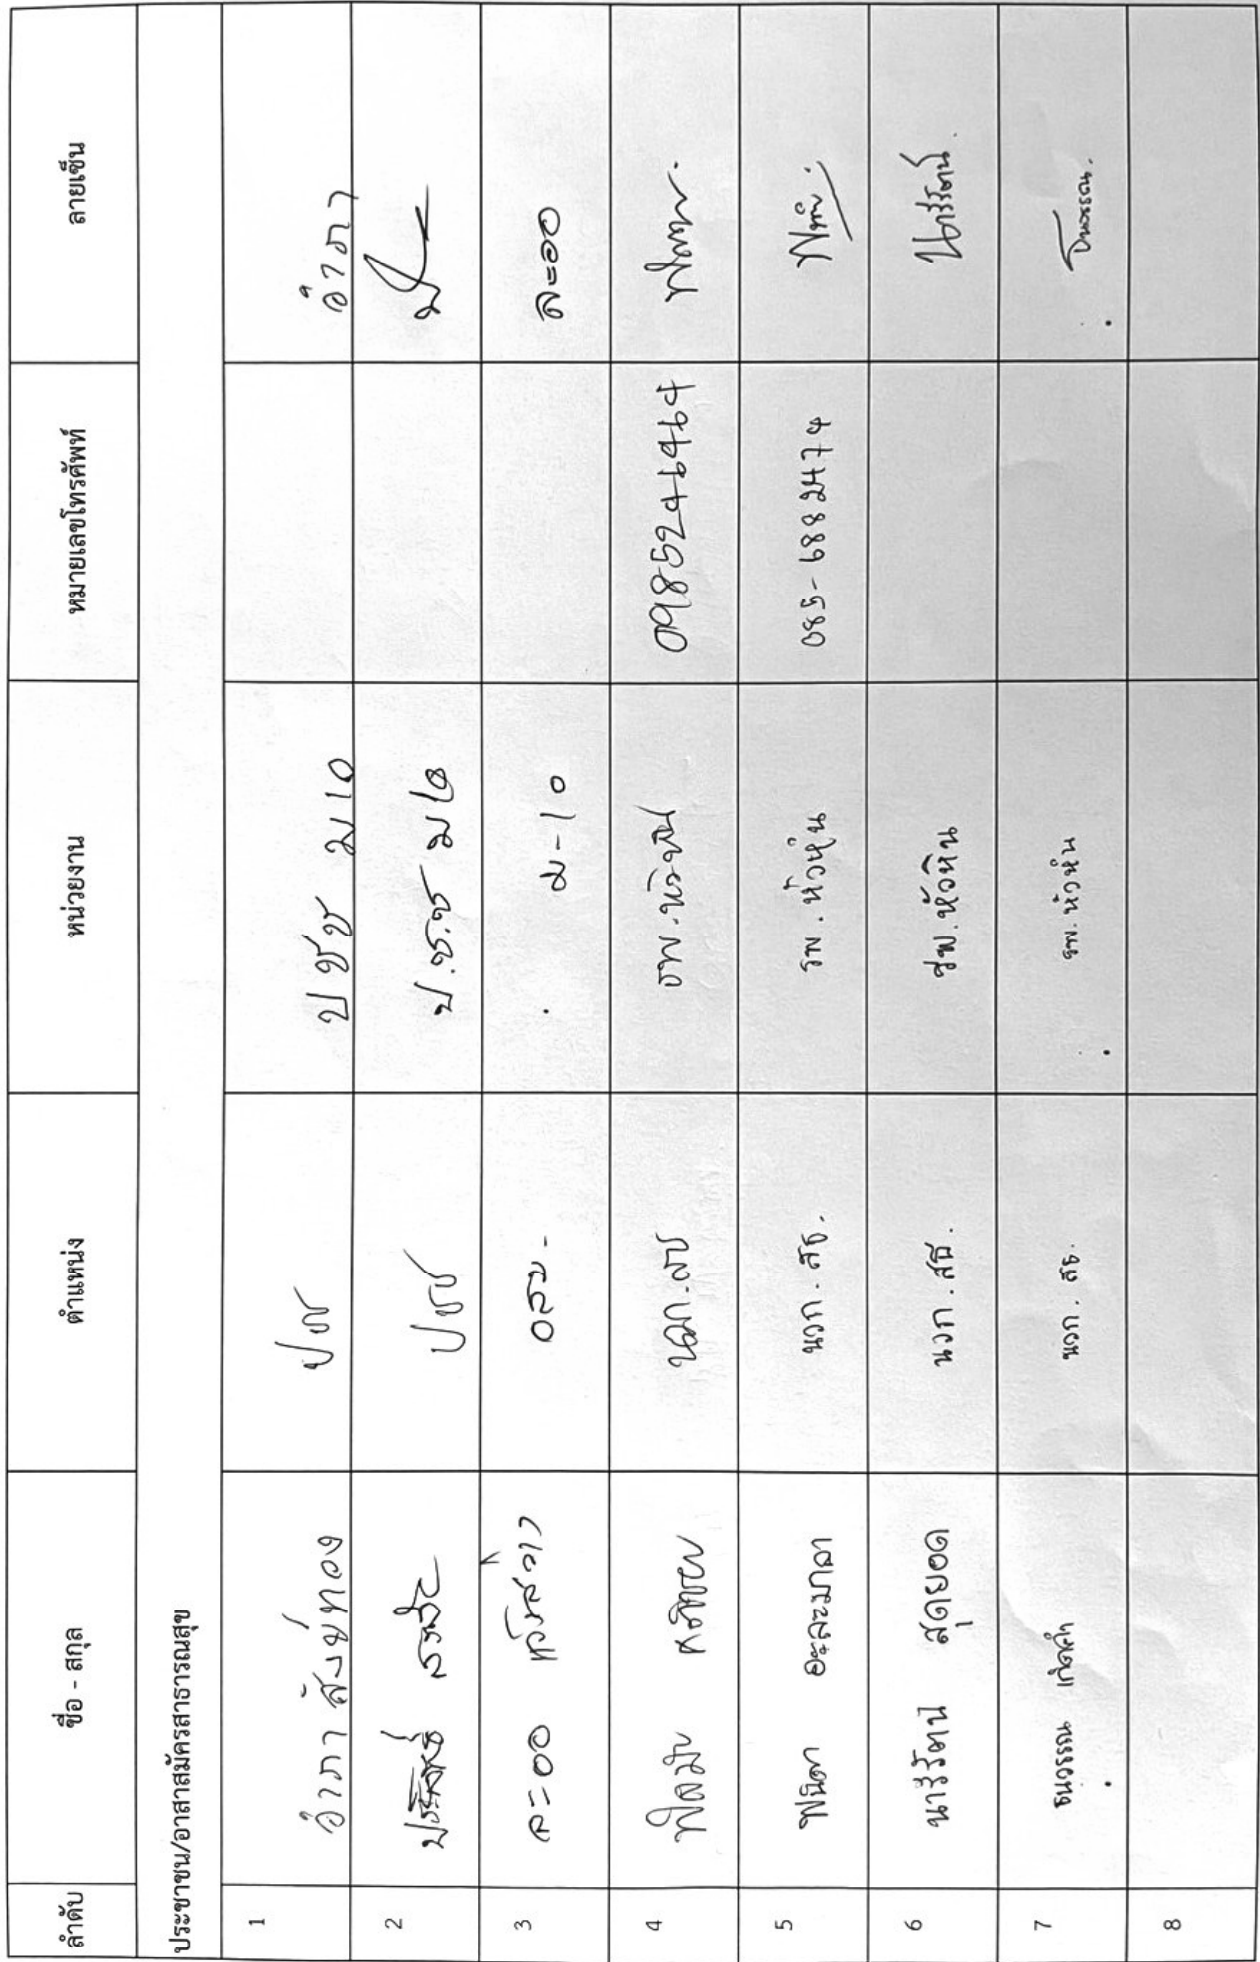 ลำดับ ชื่อ - สกุล ตำแหน่ง หน่วยงาน หมายเลขโทรศัพท์ ลายเซ็น
ประชาชน/อาสาสมัครสาธารณสุข
1 อำภา สังข์ทอง ปช ปชช ม 10 อำภา
2 ประสิทธิ์ ปชช ป.ช.ช ม
3 ละออ อสม - ม-10 ละออ
4 0985246464
5 พนิดา อะละมาลา นวก. สธ. รพ. หัวหิน 085-6882474 พนิดา.
6 นารีรัตน์ สุดยอด นวก. สธ. รพ. หัวหิน นารีรัตน์.
7 ธนวรรณ เกิดคำ นวก. สธ. รพ. หัวหิน ธนวรรณ.
8